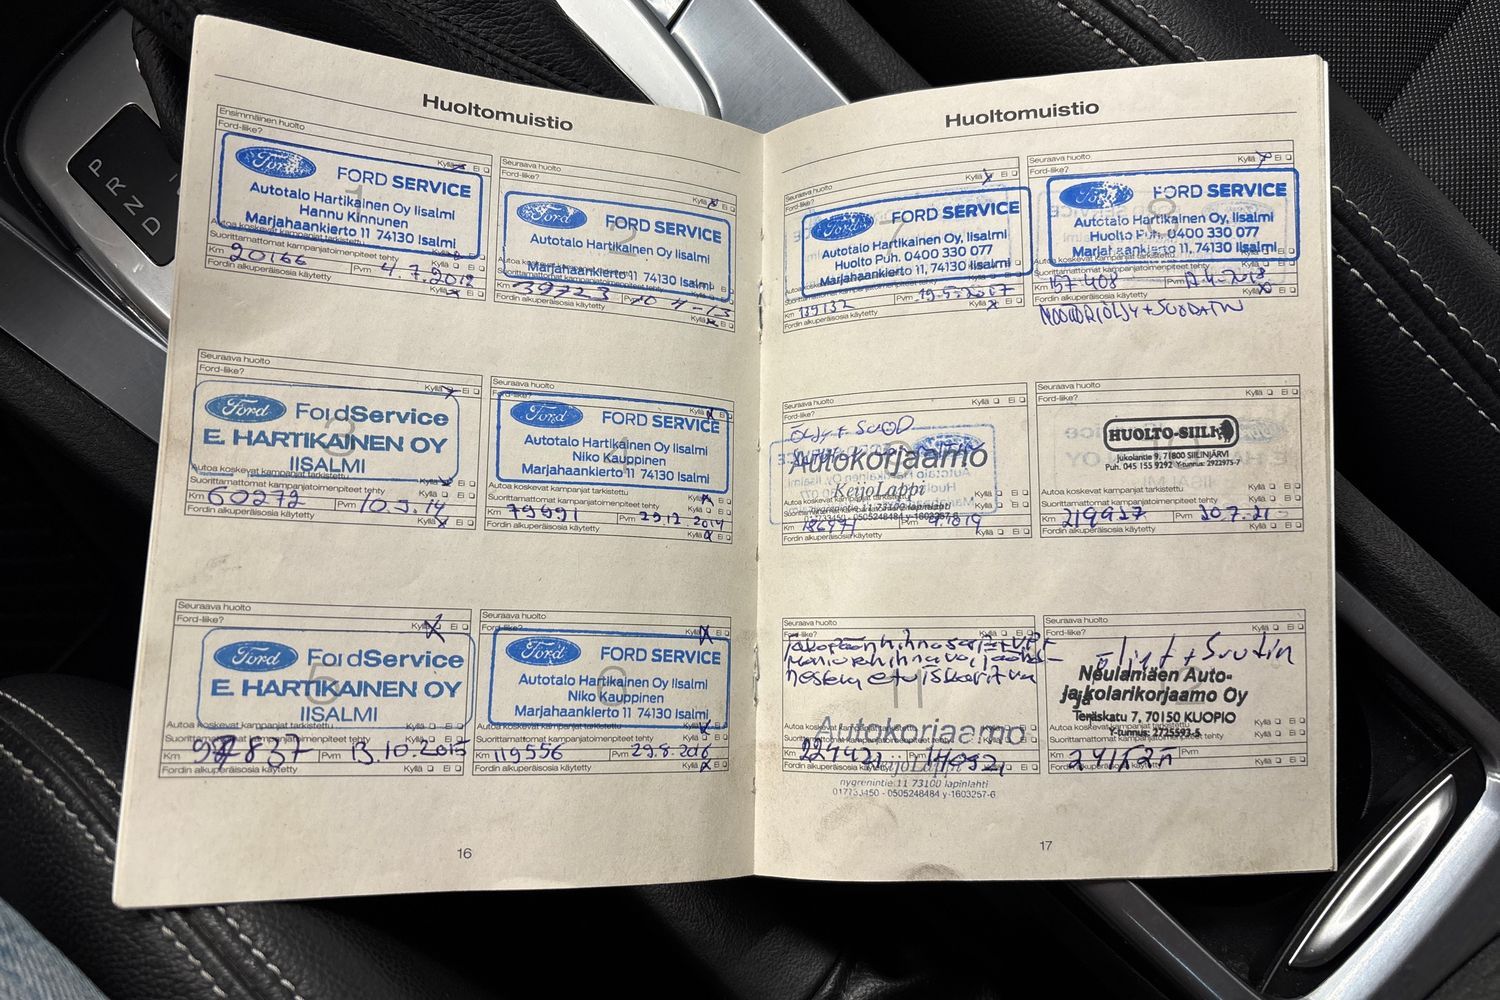 P
R
N
D
Huoltomuistio
Ensimmäinen huolto
Ford-liike?
Kyllä Ei
Ford
FORD SERVICE
Autotalo Hartikainen Oy Iisalmi
Hannu Kinnunen
Marjahaankierto 11 74130 Iisalmi
Autoa koskevat kampanjat tarkistettu
Suorittamattomat kampanjatoimenpiteet tehty
Km 20166 Pvm 4.7.2012
Fordin alkuperäisosia käytetty Kyllä Ei
Seuraava huolto
Ford-liike?
Kyllä Ei
2
Ford
FORD SERVICE
Autotalo Hartikainen Oy Iisalmi
Marjahaankierto 11 74130 Iisalmi
Autoa koskevat kampanjat tarkistettu
Suorittamattomat kampanjatoimenpiteet tehty
Km 39723 Pvm 10-4-13
Fordin alkuperäisosia käytetty Kyllä Ei
Seuraava huolto
Ford-liike?
Kyllä Ei
3
Ford
FordService
E. HARTIKAINEN OY
IISALMI
Autoa koskevat kampanjat tarkistettu
Suorittamattomat kampanjatoimenpiteet tehty
Km 60272 Pvm 10.3.14
Fordin alkuperäisosia käytetty Kyllä Ei
Seuraava huolto
Ford-liike?
Kyllä Ei
4
Ford
FORD SERVICE
Autotalo Hartikainen Oy Iisalmi
Niko Kauppinen
Marjahaankierto 11 74130 Iisalmi
Autoa koskevat kampanjat tarkistettu
Suorittamattomat kampanjatoimenpiteet tehty
Km 79691 Pvm 29.12.2014
Fordin alkuperäisosia käytetty Kyllä Ei
Seuraava huolto
Ford-liike?
Kyllä Ei
5
Ford
FordService
E. HARTIKAINEN OY
IISALMI
Autoa koskevat kampanjat tarkistettu Kyllä Ei
Suorittamattomat kampanjatoimenpiteet tehty Kyllä Ei
Km 97837 Pvm 13.10.2015
Fordin alkuperäisosia käytetty Kyllä Ei
Seuraava huolto
Ford-liike?
Kyllä Ei
6
Ford
FORD SERVICE
Autotalo Hartikainen Oy Iisalmi
Niko Kauppinen
Marjahaankierto 11 74130 Iisalmi
Autoa koskevat kampanjat tarkistettu
Suorittamattomat kampanjatoimenpiteet tehty
Km 119556 Pvm 29.8.2016
Fordin alkuperäisosia käytetty Kyllä Ei
16
Huoltomuistio
Seuraava huolto
Ford-liike?
Kyllä Ei
7
Ford
FORD SERVICE
Autotalo Hartikainen Oy, Iisalmi
Huolto Puh. 0400 330 077
Marjahaankierto 11, 74130 Iisalmi
Km 139132 Pvm 19.5.2017
Fordin alkuperäisosia käytetty Kyllä Ei
Seuraava huolto
Ford-liike?
Kyllä Ei
8
Ford
FORD SERVICE
Autotalo Hartikainen Oy, Iisalmi
Huolto Puh. 0400 330 077
Marjahaankierto 11, 74130 Iisalmi
Autoa koskevat kampanjat tarkistettu
Suorittamattomat kampanjatoimenpiteet tehty
Km 157408 Pvm 12.4.2018
Fordin alkuperäisosia käytetty Kyllä Ei
MOOTTORIÖLJY + SUODATIN
Seuraava huolto
Ford-liike? Kyllä Ei
ÖLJY + SUOD
Autokorjaamo
KeijoLappi
nygrenintie 11 73100 lapinlahti
017733450 - 0505248484 y-1603257-6
Autoa koskevat kampanjat tarkistettu Kyllä Ei
Km 186991 Pvm
Fordin alkuperäisosia käytetty Kyllä Ei
Seuraava huolto
Ford-liike? Kyllä Ei
HUOLTO-SIILI
Jukolantie 9, 71800 SIILINJÄRVI
Puh. 045 155 9292 Y-tunnus: 2922975-7
Autoa koskevat kampanjat tarkistettu Kyllä Ei
Suorittamattomat kampanjatoimenpiteet tehty Kyllä Ei
Km 219927 Pvm 20.7.21
Fordin alkuperäisosia käytetty Kyllä Ei
Seuraava huolto
Ford-liike? Kyllä Ei
Jakopään hihnasarja + V.P +
moniurahihna
11
Autokorjaamo
KeijoLappi
nygrenintie 11 73100 lapinlahti
017733450 - 0505248484 y-1603257-6
Autoa koskevat kampanjat tarkistettu Kyllä Ei
Suorittamattomat kampanjatoimenpiteet tehty Kyllä Ei
Km 224421 Pvm
Fordin alkuperäisosia käytetty Kyllä Ei
Seuraava huolto
Ford-liike? Kyllä Ei
öljyt + Suutin
Neulamäen Auto-
ja kolarikorjaamo Oy
Teräskatu 7, 70150 KUOPIO
Y-tunnus: 2725593-5
Autoa koskevat kampanjat tarkistettu Kyllä Ei
Suorittamattomat kampanjatoimenpiteet tehty Kyllä Ei
Km Pvm
Fordin alkuperäisosia käytetty Kyllä Ei
17